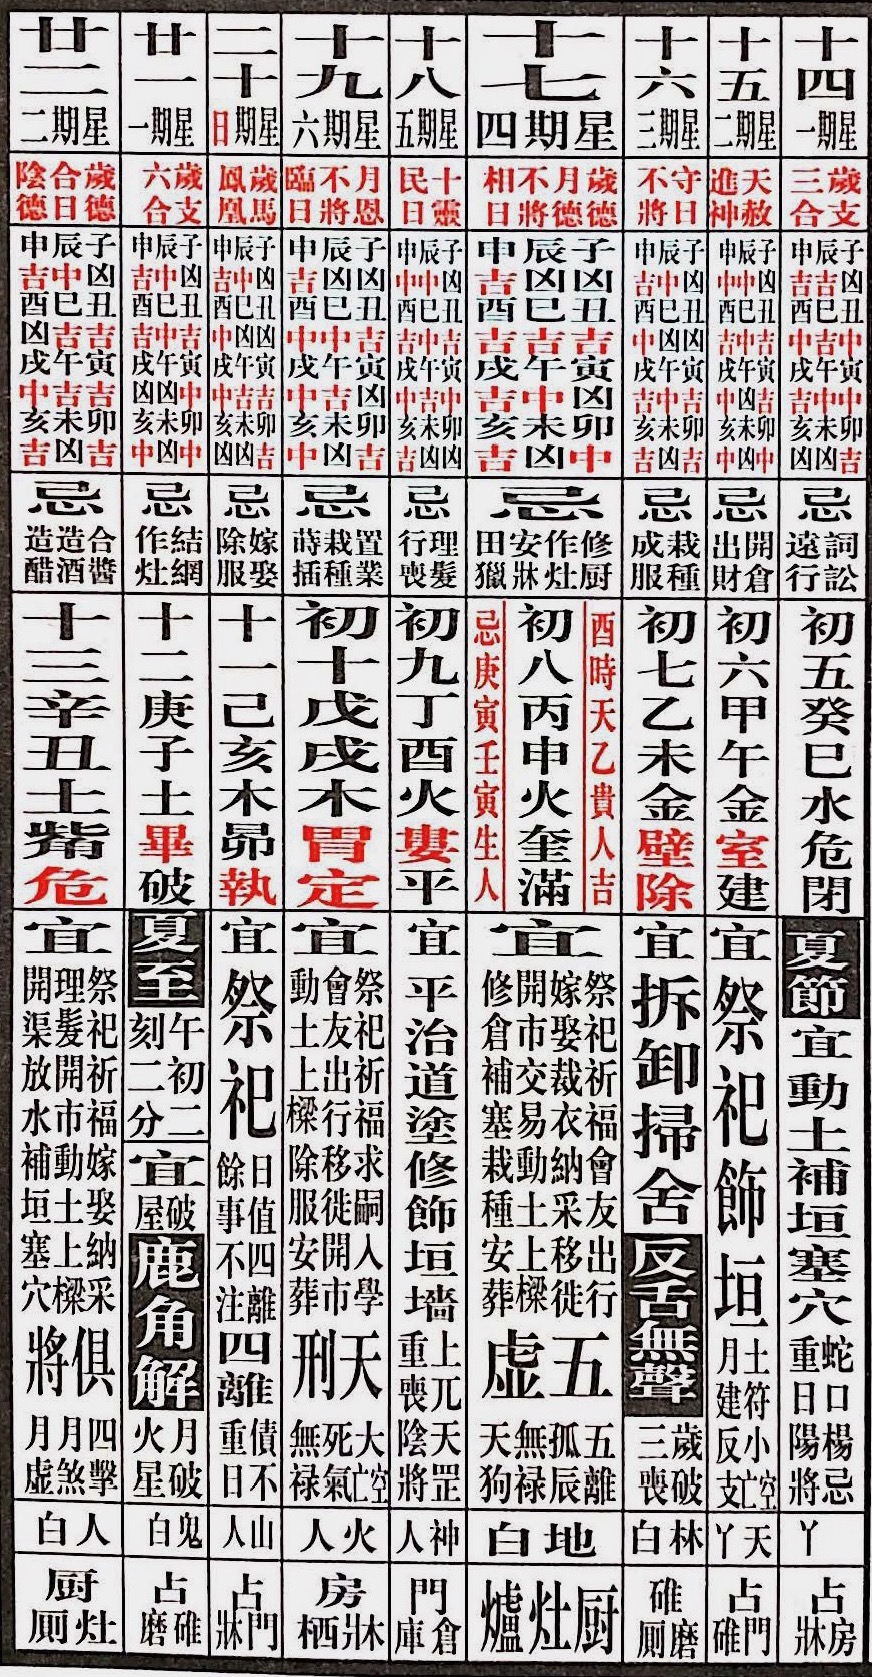 十四
星期一
歲支
三合
子凶丑中寅中卯吉
辰吉巳吉午中未凶
申吉酉中戌吉亥凶
忌
詞訟
遠行
初五癸巳水危閉
夏節
宜動土補垣塞穴
蛇口楊忌
重日陽將
丫
占
房
牀
十五
星期二
天赦
進神
子凶丑吉寅吉卯中
辰中巳中午凶未凶
申中酉吉戌中亥中
忌
開倉
出財
初六甲午金室建
宜祭祀飾垣
土符小空亡
月建反支
天丫
占
門
碓
十六
星期三
守日
不將
子凶丑凶寅吉卯吉
辰中巳凶午中未凶
申吉酉中戌吉亥吉
忌
栽種
成服
初七乙未金壁除
宜拆卸掃舍
反舌無聲
歲破
三喪
林白
碓
磨
厠
十七
星期四
歲德
月德
不將
相日
子凶丑吉寅凶卯中
辰凶巳吉午中未凶
申吉酉吉戌吉亥吉
忌
修厨
作灶
安牀
田獵
酉時天乙貴人吉
初八丙申火奎滿
忌庚寅壬寅生人
宜
祭祀祈福會友出行
嫁娶裁衣納采移徙
開市交易動土上樑
修倉補塞栽種安葬
五虛
五離
孤辰
無祿
天狗
地白
厨灶爐
十八
星期五
十靈
民日
子凶丑吉寅中卯凶
辰中巳中午吉未凶
申中酉吉戌中亥吉
忌
理髮
行喪
初九丁酉火婁平
宜平治道塗修飾垣墻
上兀天罡
重喪陰將
神人
門
倉
庫
十九
星期六
月恩
不將
臨日
子凶丑吉寅凶卯吉
辰凶巳中午吉未凶
申吉酉中戌中亥中
忌
置業
栽種
蒔插
初十戊戌木胃定
宜
祭祀祈福求嗣入學
會友出行移徙開市
動土上樑除服安葬
天刑
大空亡
死氣
無禄
火人
房
牀
栖
二十
星期日
歲馬
鳳凰
子凶丑凶寅吉卯吉
辰中巳凶午吉未凶
申吉酉中戌中亥凶
忌
嫁娶
除服
十一己亥木昴執
宜祭祀
日值四離
餘事不注
四離
債不
重日
山人
占
門
牀
廿一
星期一
歲支
六合
子凶丑吉寅中卯中
辰中巳中午凶未凶
申吉酉吉戌凶亥中
忌
結網
作灶
十二庚子土畢破
夏至
午初二
刻二分
宜
破屋
鹿角解
月破
火星
鬼白
占
碓
磨
廿二
星期二
歲德
合日
陰德
子凶丑吉寅吉卯吉
辰中巳吉午吉未凶
申吉酉凶戌中亥吉
忌
合醬
造酒
造醋
十三辛丑土觜危
宜
祭祀祈福嫁娶納采
理髮開市動土上樑
開渠放水補垣塞穴
俱將
四擊
月煞
月虛
人白
厨
灶
厠